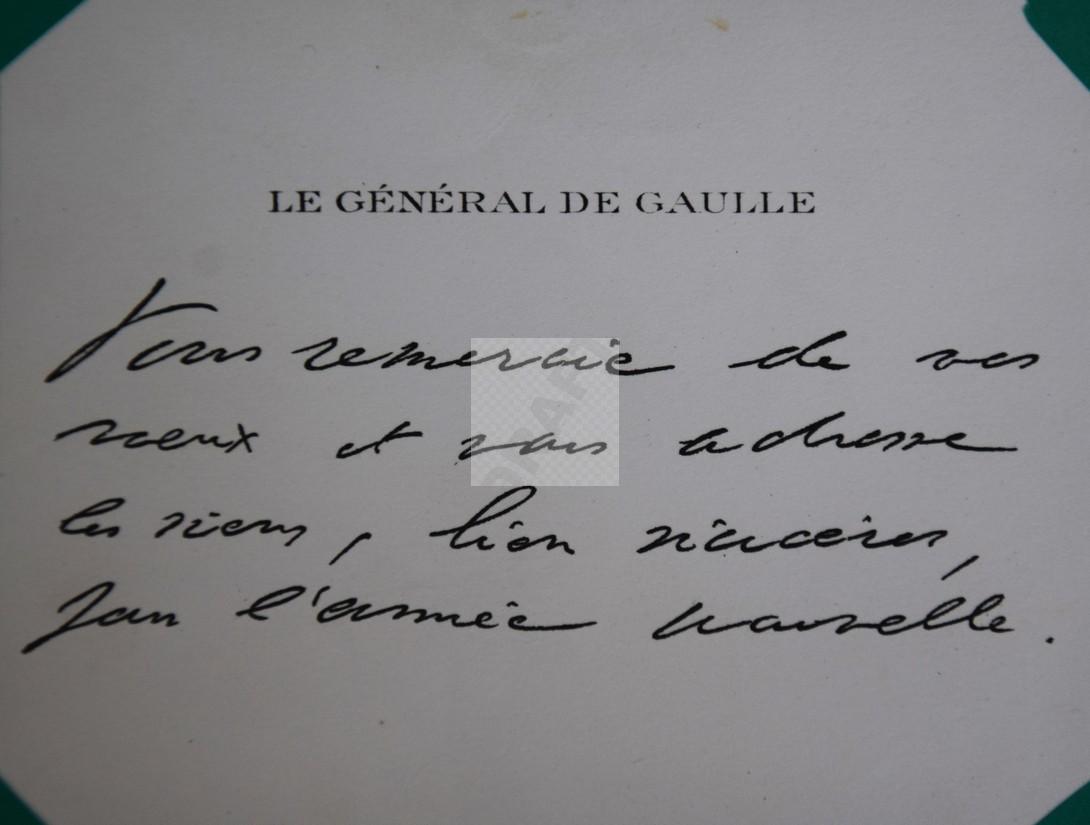 LE GÉNÉRAL DE GAULLE
Vous remercie de vos
vœux et vous adresse
les siens, bien sincères,
pour l'année nouvelle.
DRAFT